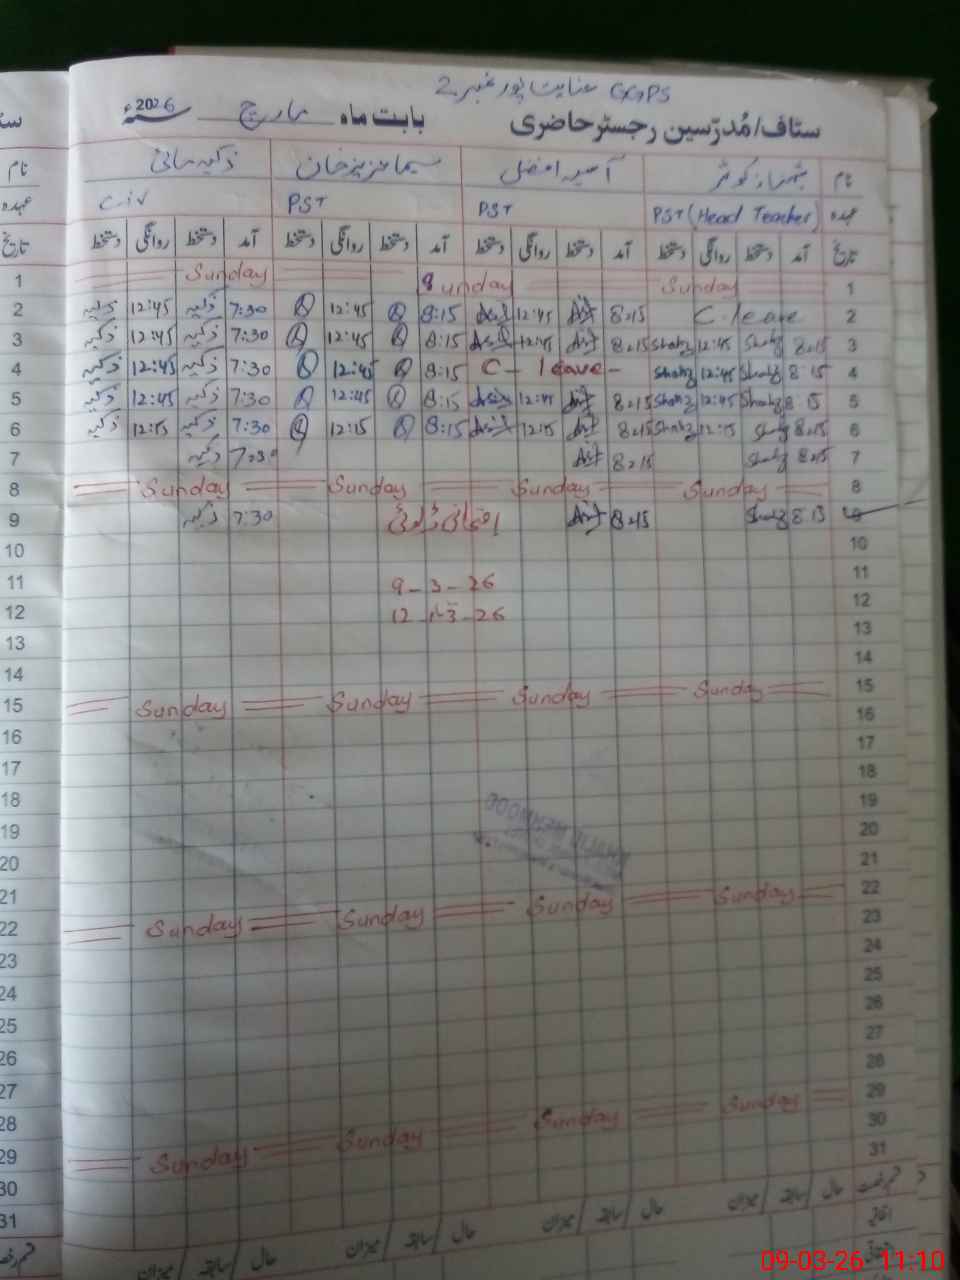 GGPS عنایت پور نمبر 2
ستاف/مُدرّسین رجسٹر حاضری بابت ماہ مارچ 2026ء
نام شہناز کوثر آسیہ افضل سیما عزیز خان ذکیہ
عہدہ PST (Head Teacher) PST PST
تاریخ آمد دستخط روانگی دستخط آمد دستخط روانگی دستخط آمد دستخط روانگی دستخط آمد دستخط روانگی دستخط
1 Sunday Sunday Sunday 1
2 ذکیہ 12:45 ذکیہ 7:30 12:45 8:15 12:45 8:15 C. leave 2
3 ذکیہ 12:45 ذکیہ 7:30 12:45 8:15 12:45 8:15 Shahz 12:45 Shahz 8:15 3
4 ذکیہ 12:45 ذکیہ 7:30 12:45 8:15 C - leave - Shahz 12:45 Shahz 8:15 4
5 ذکیہ 12:45 ذکیہ 7:30 12:45 8:15 12:45 8:15 Shahz 12:45 Shahz 8:15 5
6 ذکیہ 12:15 ذکیہ 7:30 12:15 8:15 12:15 8:15 Shahz 12:15 Shahz 8:15 6
7 ذکیہ 7:30 8:15 Shahz 8:15 7
8 Sunday Sunday Sunday Sunday 8
9 ذکیہ 7:30 8:15 Shahz 8:15 9
10 10
11 9-3-26 11
12 12-3-26 12
13 13
14 14
15 Sunday Sunday Sunday Sunday 15
16 16
17 17
18 18
19 19
20 20
21 21
22 Sunday Sunday Sunday Sunday 22
23 23
24 24
25 25
26 26
27 27
28 28
29 Sunday Sunday Sunday Sunday 29
30 30
31 31
حال سابقہ میزان حال سابقہ میزان حال سابقہ میزان حال سابقہ میزان
09-03-26 11:10